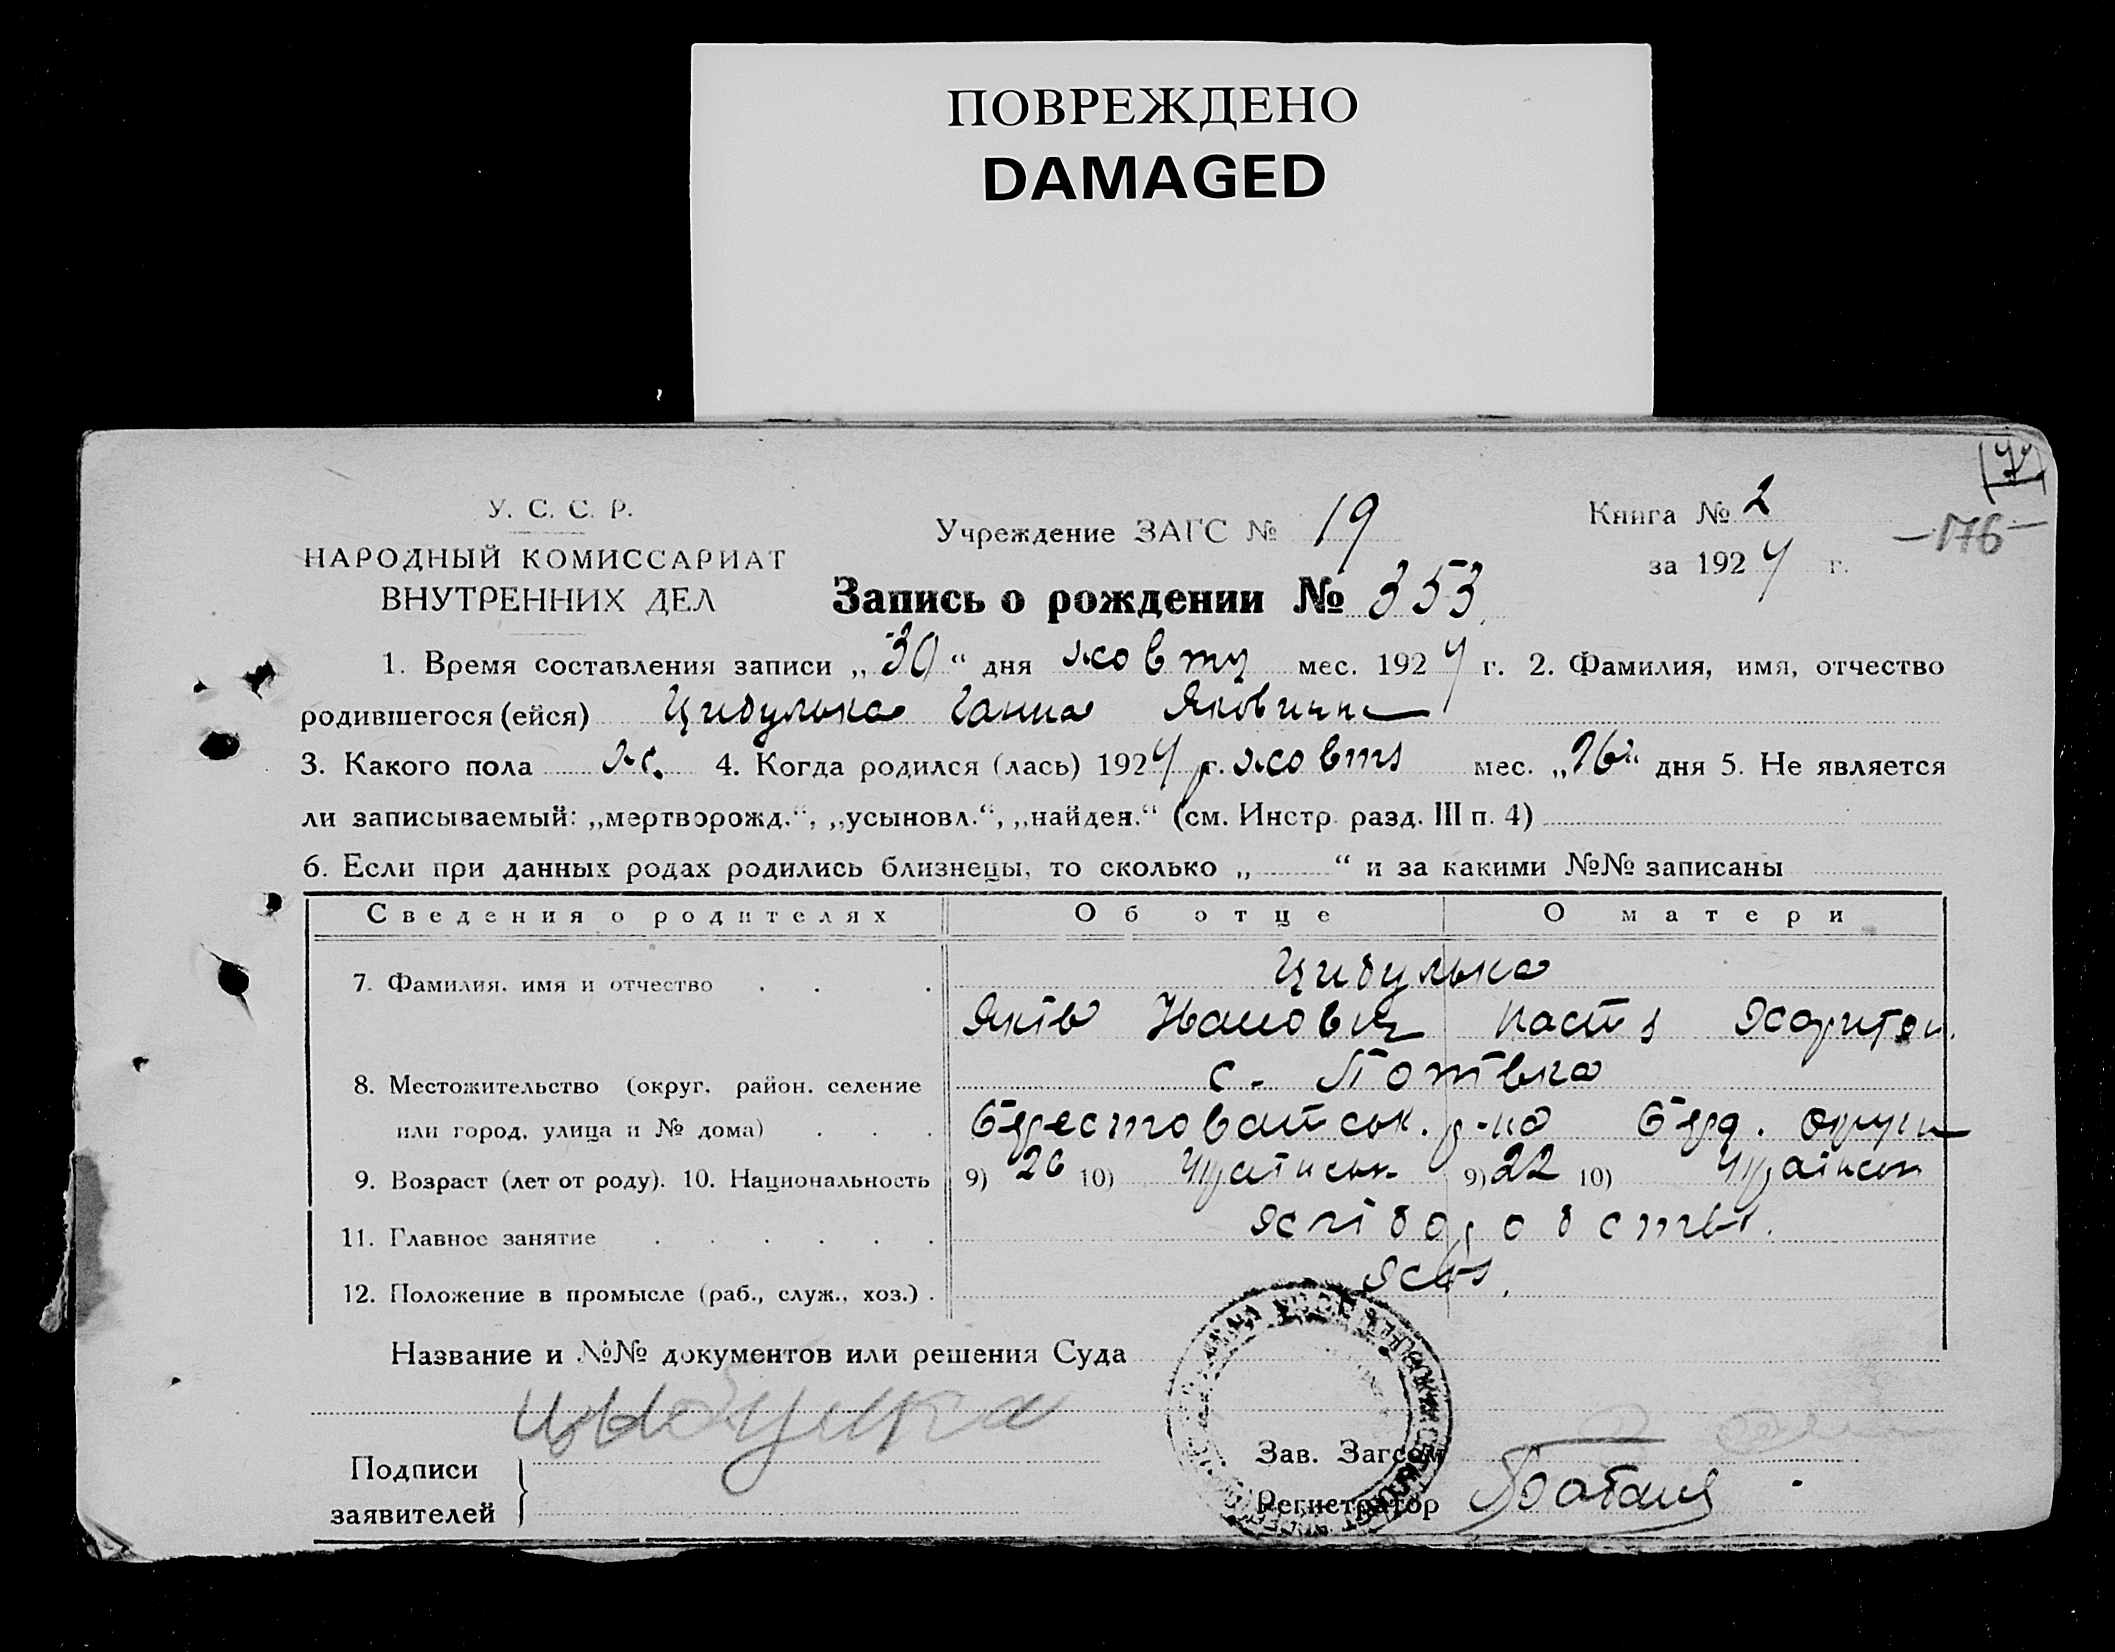 ПОВРЕЖДЕНО
DAMAGED
У. С. С. Р.
НАРОДНЫЙ КОМИССАРИАТ
ВНУТРЕННИХ ДЕЛ
Учреждение ЗАГС № 19
Книга № 2
-176-
за 1924 г.
Запись о рождении № 353
1. Время составления записи „30“ дня жовтц мес. 1924 г. 2. Фамилия, имя, отчество
родившегося (ейся) Цибулька Ганна Яковичн
3. Какого пола ж. 4. Когда родился (лась) 1924 г. жовтя мес. „16“ дня 5. Не является
ли записываемый: „мертворожд.“, „усыновл.“, „найден.“ (см. Инстр. разд. III п. 4)
6. Если при данных родах родились близнецы, то сколько „ “ и за какими №№ записаны
Сведения о родителях Об отце О матери
7. Фамилия, имя и отчество . . . Цибулька
Яків Іванович Настя Харитон.
8. Местожительство (округ, район, селение с.
или город, улица и № дома) . . . Берестоватськ. р-на Берд. округи
9. Возраст (лет от роду). 10. Национальность 9) 26 10) Українськ 9) 22 10) Українськ
11. Главное занятие . . . . . . хліборобство.
12. Положение в промысле (раб., служ., хоз.) .
Название и №№ документов или решения Суда
цыбулка
Подписи
заявителей
Зав. Загсом
Регистратор